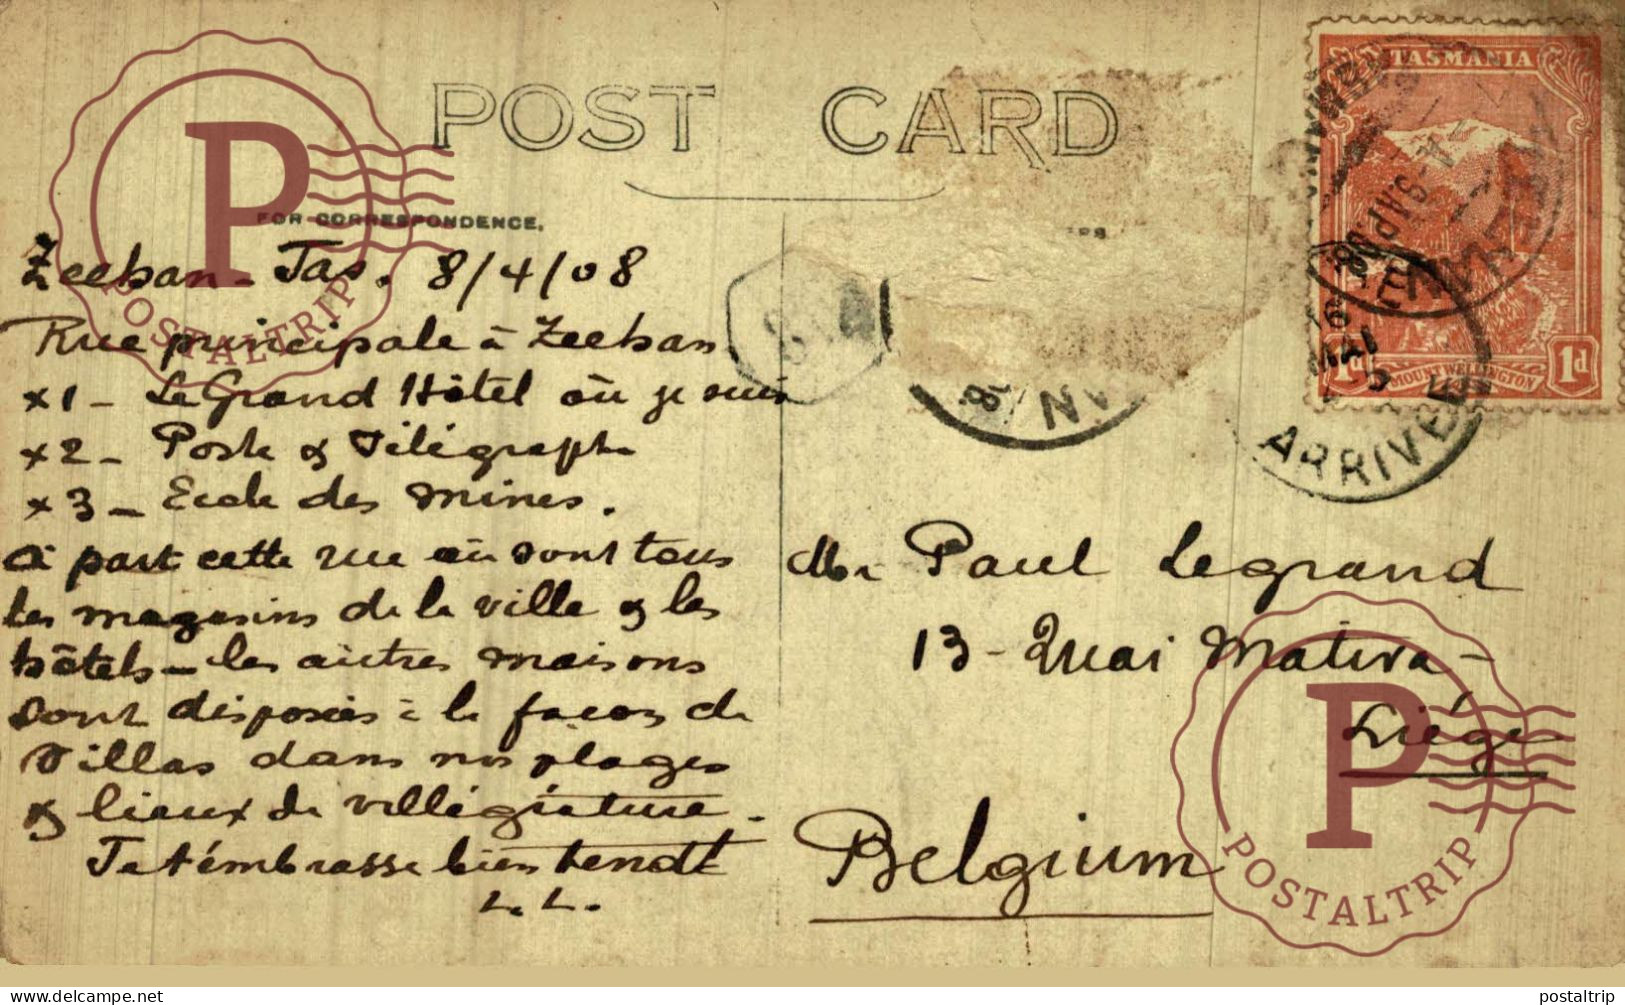 POST CARD
FOR CORRESPONDENCE.
Zeehan - Tas. 8/4/08
Rue principale à Zeehan.
x1 - Le Grand Hôtel où je suis
x2 - Poste & Télégraphe
x3 - Ecole des mines.
à part cette rue où sont tous
les magasins de la ville & les
hôtels - les autres maisons
sont disposées à la façon de
villas dans nos plages
& lieux de villégiature.
Je t'embrasse bien tendt
L. L.
TASMANIA
1d 1d
MOUNT WELLINGTON
AP 08
16
MAI
ARRIVEE
AN
Mr Paul Legrand
13 - Quai Mativa -
Liége
Belgium
P
POSTALTRIP
P
POSTALTRIP
delcampe.net
postaltrip